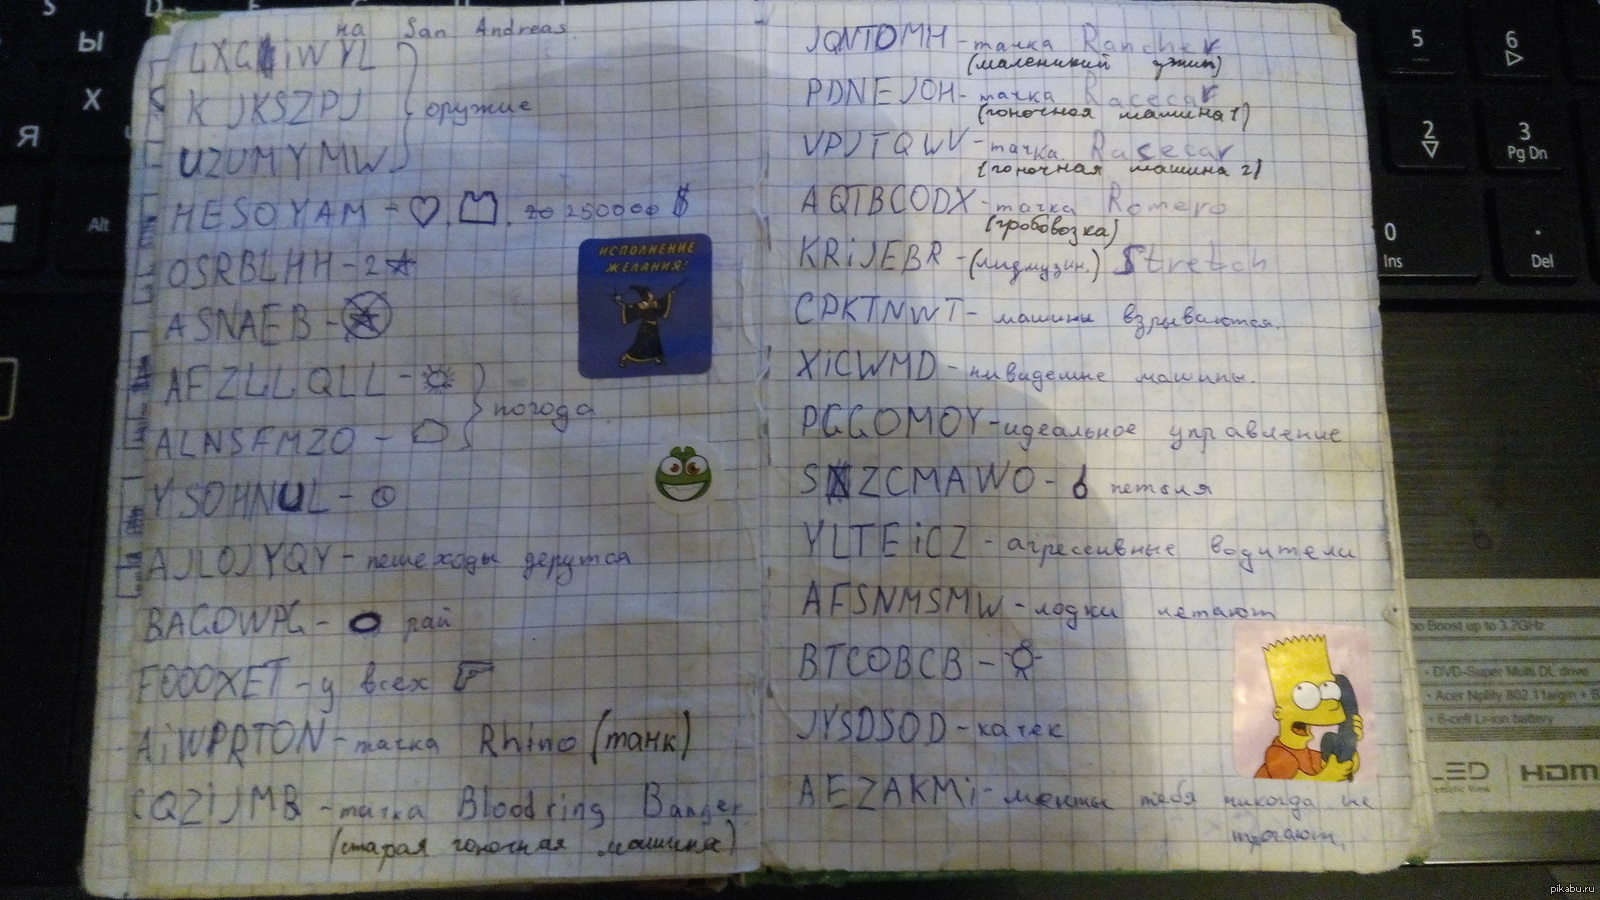 на San Andreas.
LXGiWYL
KJKSZPJ } оружие
UZUMYMW
HESOYAM - , 250000 $
OSRBLHH - 2
ASNAEB -
AFZLLQLL -
} погода
ALNSFMZO -
YSOHNUL -
AJLOJYQY - пешеходы дерутся
BAGOWPG - рай
FOOOXET - у всех
AiWPRTON - тачка Rhino (танк)
CQZiJMB - тачка Bloodring Banger
(старая гоночная машина)
ИСПОЛНЕНИЕ
ЖЕЛАНИЯ!
JQNTDMH - тачка Rancher
(маленикий джип)
PDNEJOH - тачка Racecar
(гоночная машина 1)
VPJTQWV - тачка Racecar
(гоночная машина 2)
AQTBCODX - тачка Romero
(гробовозка)
KRiJEBR - (лидмузин.) Stretch
CPKTNWT - машины взрываются.
XiCWMD - нивидемые машины.
PGGOMOY - идеальное управление
SZCMAWO - петля
YLTEiCZ - агрессивные водители
AFSNMSMW - лодки летают
BTCOBCB -
JYSDSOD - качек
AEZAKMi - менты тебя никогда не
трогают.
S D E
Ы
Х
Я
Alt
5
6
2
3
Pg Dn
0
Ins
.
Del
Boost up to 3.2GHz
• DVD-Super Multi DL drive
• Acer Nplify 802.11a/g/n +
• 6-cell Li-ion battery
LED
HDMI
pikabu.ru